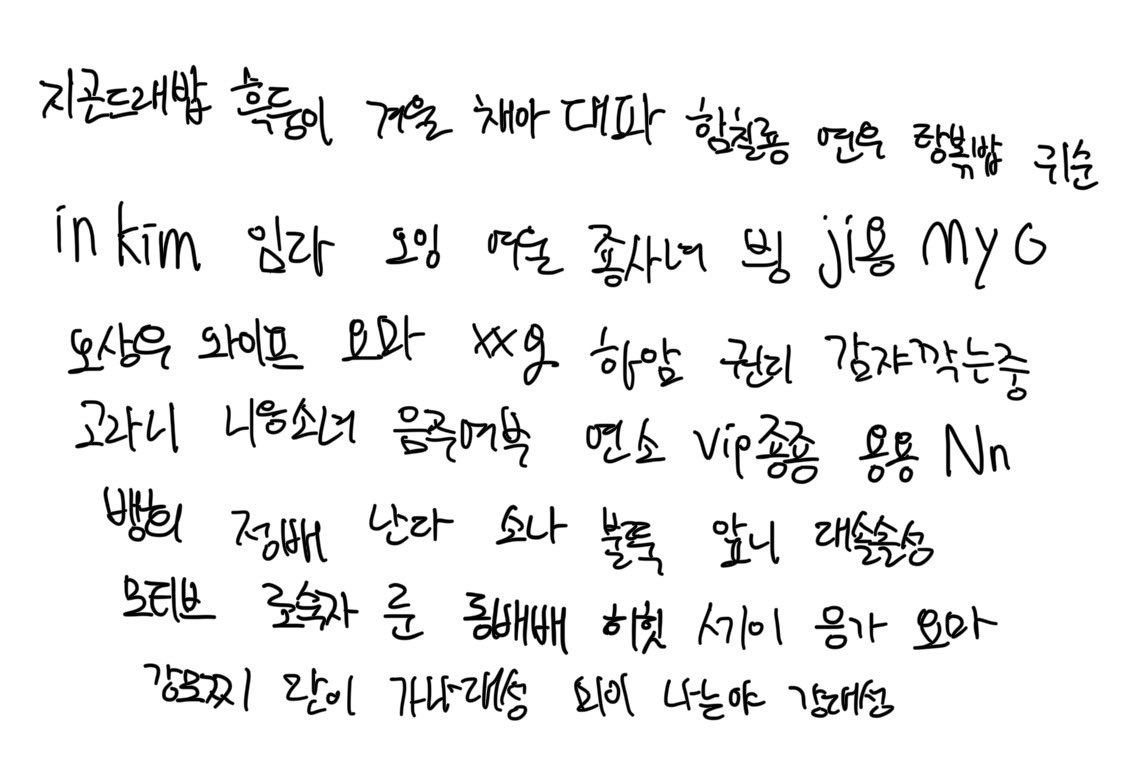 지곤드래밥 흑둥이 겨울 채아 대파 함칠룡 연우 탕볶밥 귀순
in kim 임라 오잉 여울 죵사녀 빙 ji용 my G
오상우 와이프 요마 xx용 하암 권리 감쟈깍는중
고라니 니응소녀 음주여부 연소 vip죵죵 용용 Nn
뱅희 정배 난다 소나 불룩 앞니 대솔솔성
모티브 로숙자 룬 동배배 히힛 서기이 응가 요마
강모찌 란이 가나대성 외이 나는야 강대성